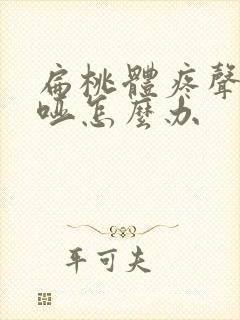 扁桃體疼聲
啞怎麼办
平可夫